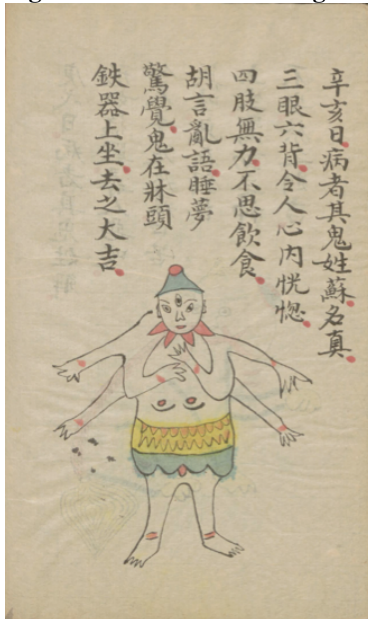 辛亥日病者其鬼姓蘇名真
三眼六背令人心內恍惚
四肢無力不思飲食
胡言亂語睡夢
驚覺鬼在牀頭
鉄器上坐去之大吉